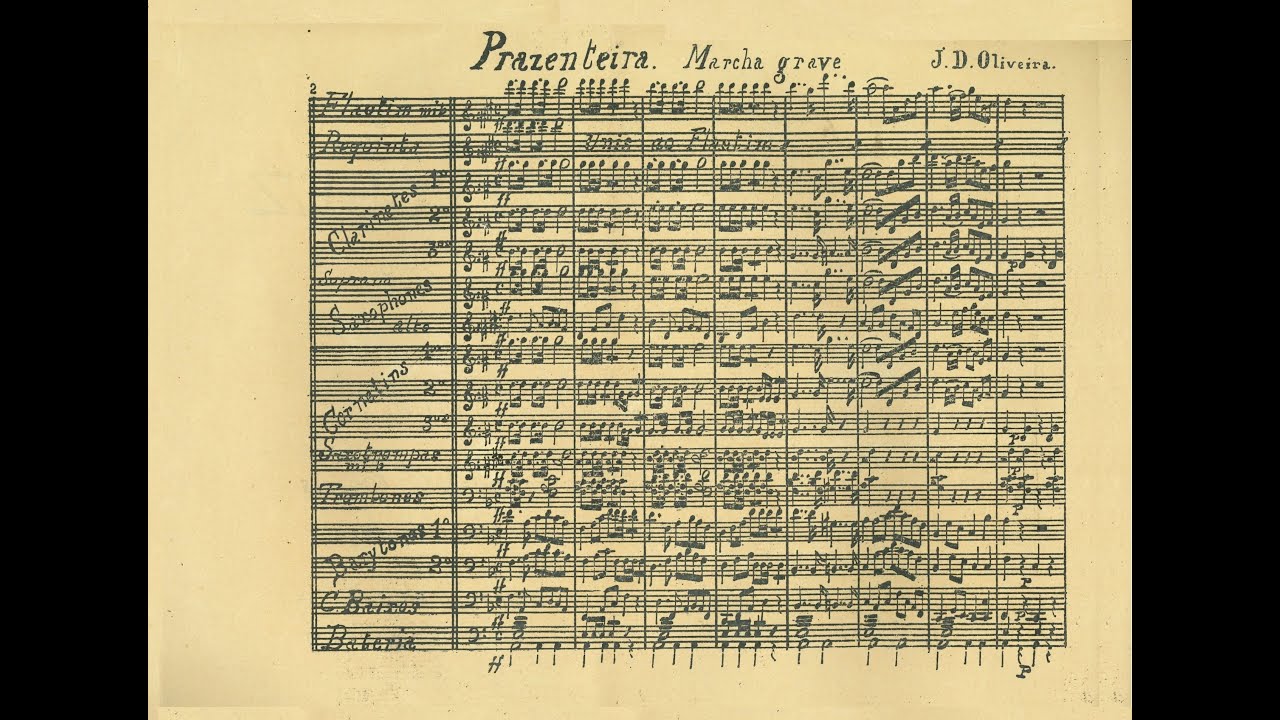 Prazenteira. Marcha grave J. D. Oliveira.
2
Flautim mib
Requinta Unis ao Flautim
Clarinetes 1º
2º
3º
Soprano
Saxophones
alto
Cornetins 1º
2º
3º
Saxtrompas
Trombones
Barytonos 1º
2º
C. Baixos
Bateria